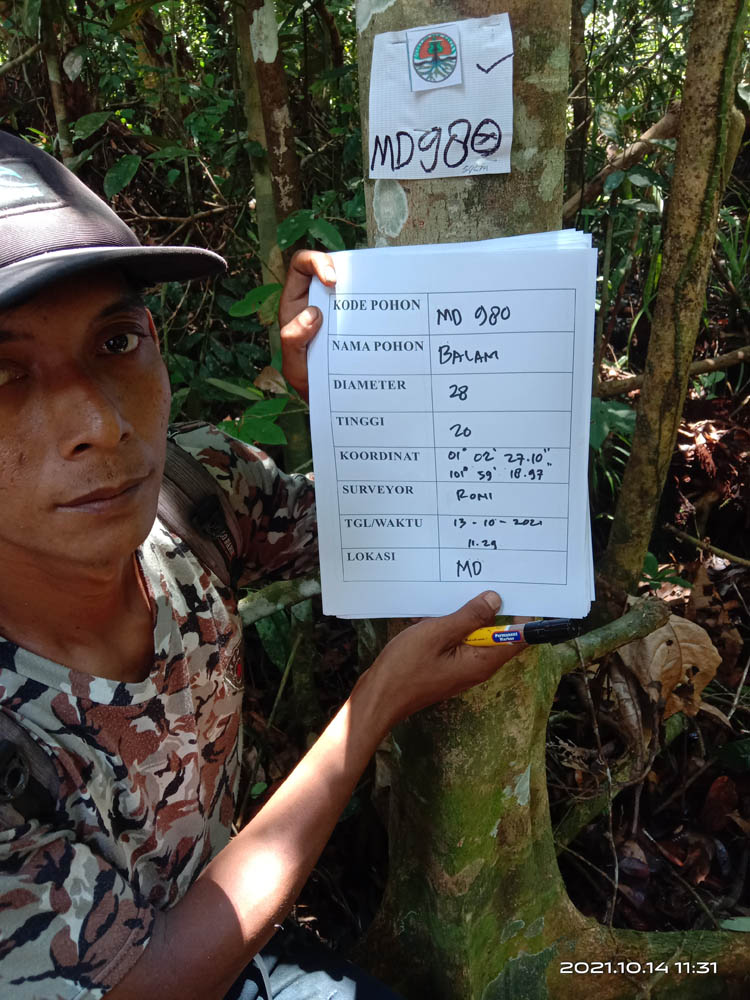 MD980
KODE POHON MD 980
NAMA POHON BALAM
DIAMETER 28
TINGGI 20
KOORDINAT 01° 02' 27.10"
101° 59' 18.97"
SURVEYOR ROMI
TGL/WAKTU 13-10-2021
11.29
LOKASI MD
Permanent
Marker
2021.10.14 11:31